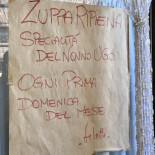 ZUPPA RIPIENA
SPECIALITÀ
DEL NONNO UGO
OGNI PRIMA
DOMENICA
DEL MESE